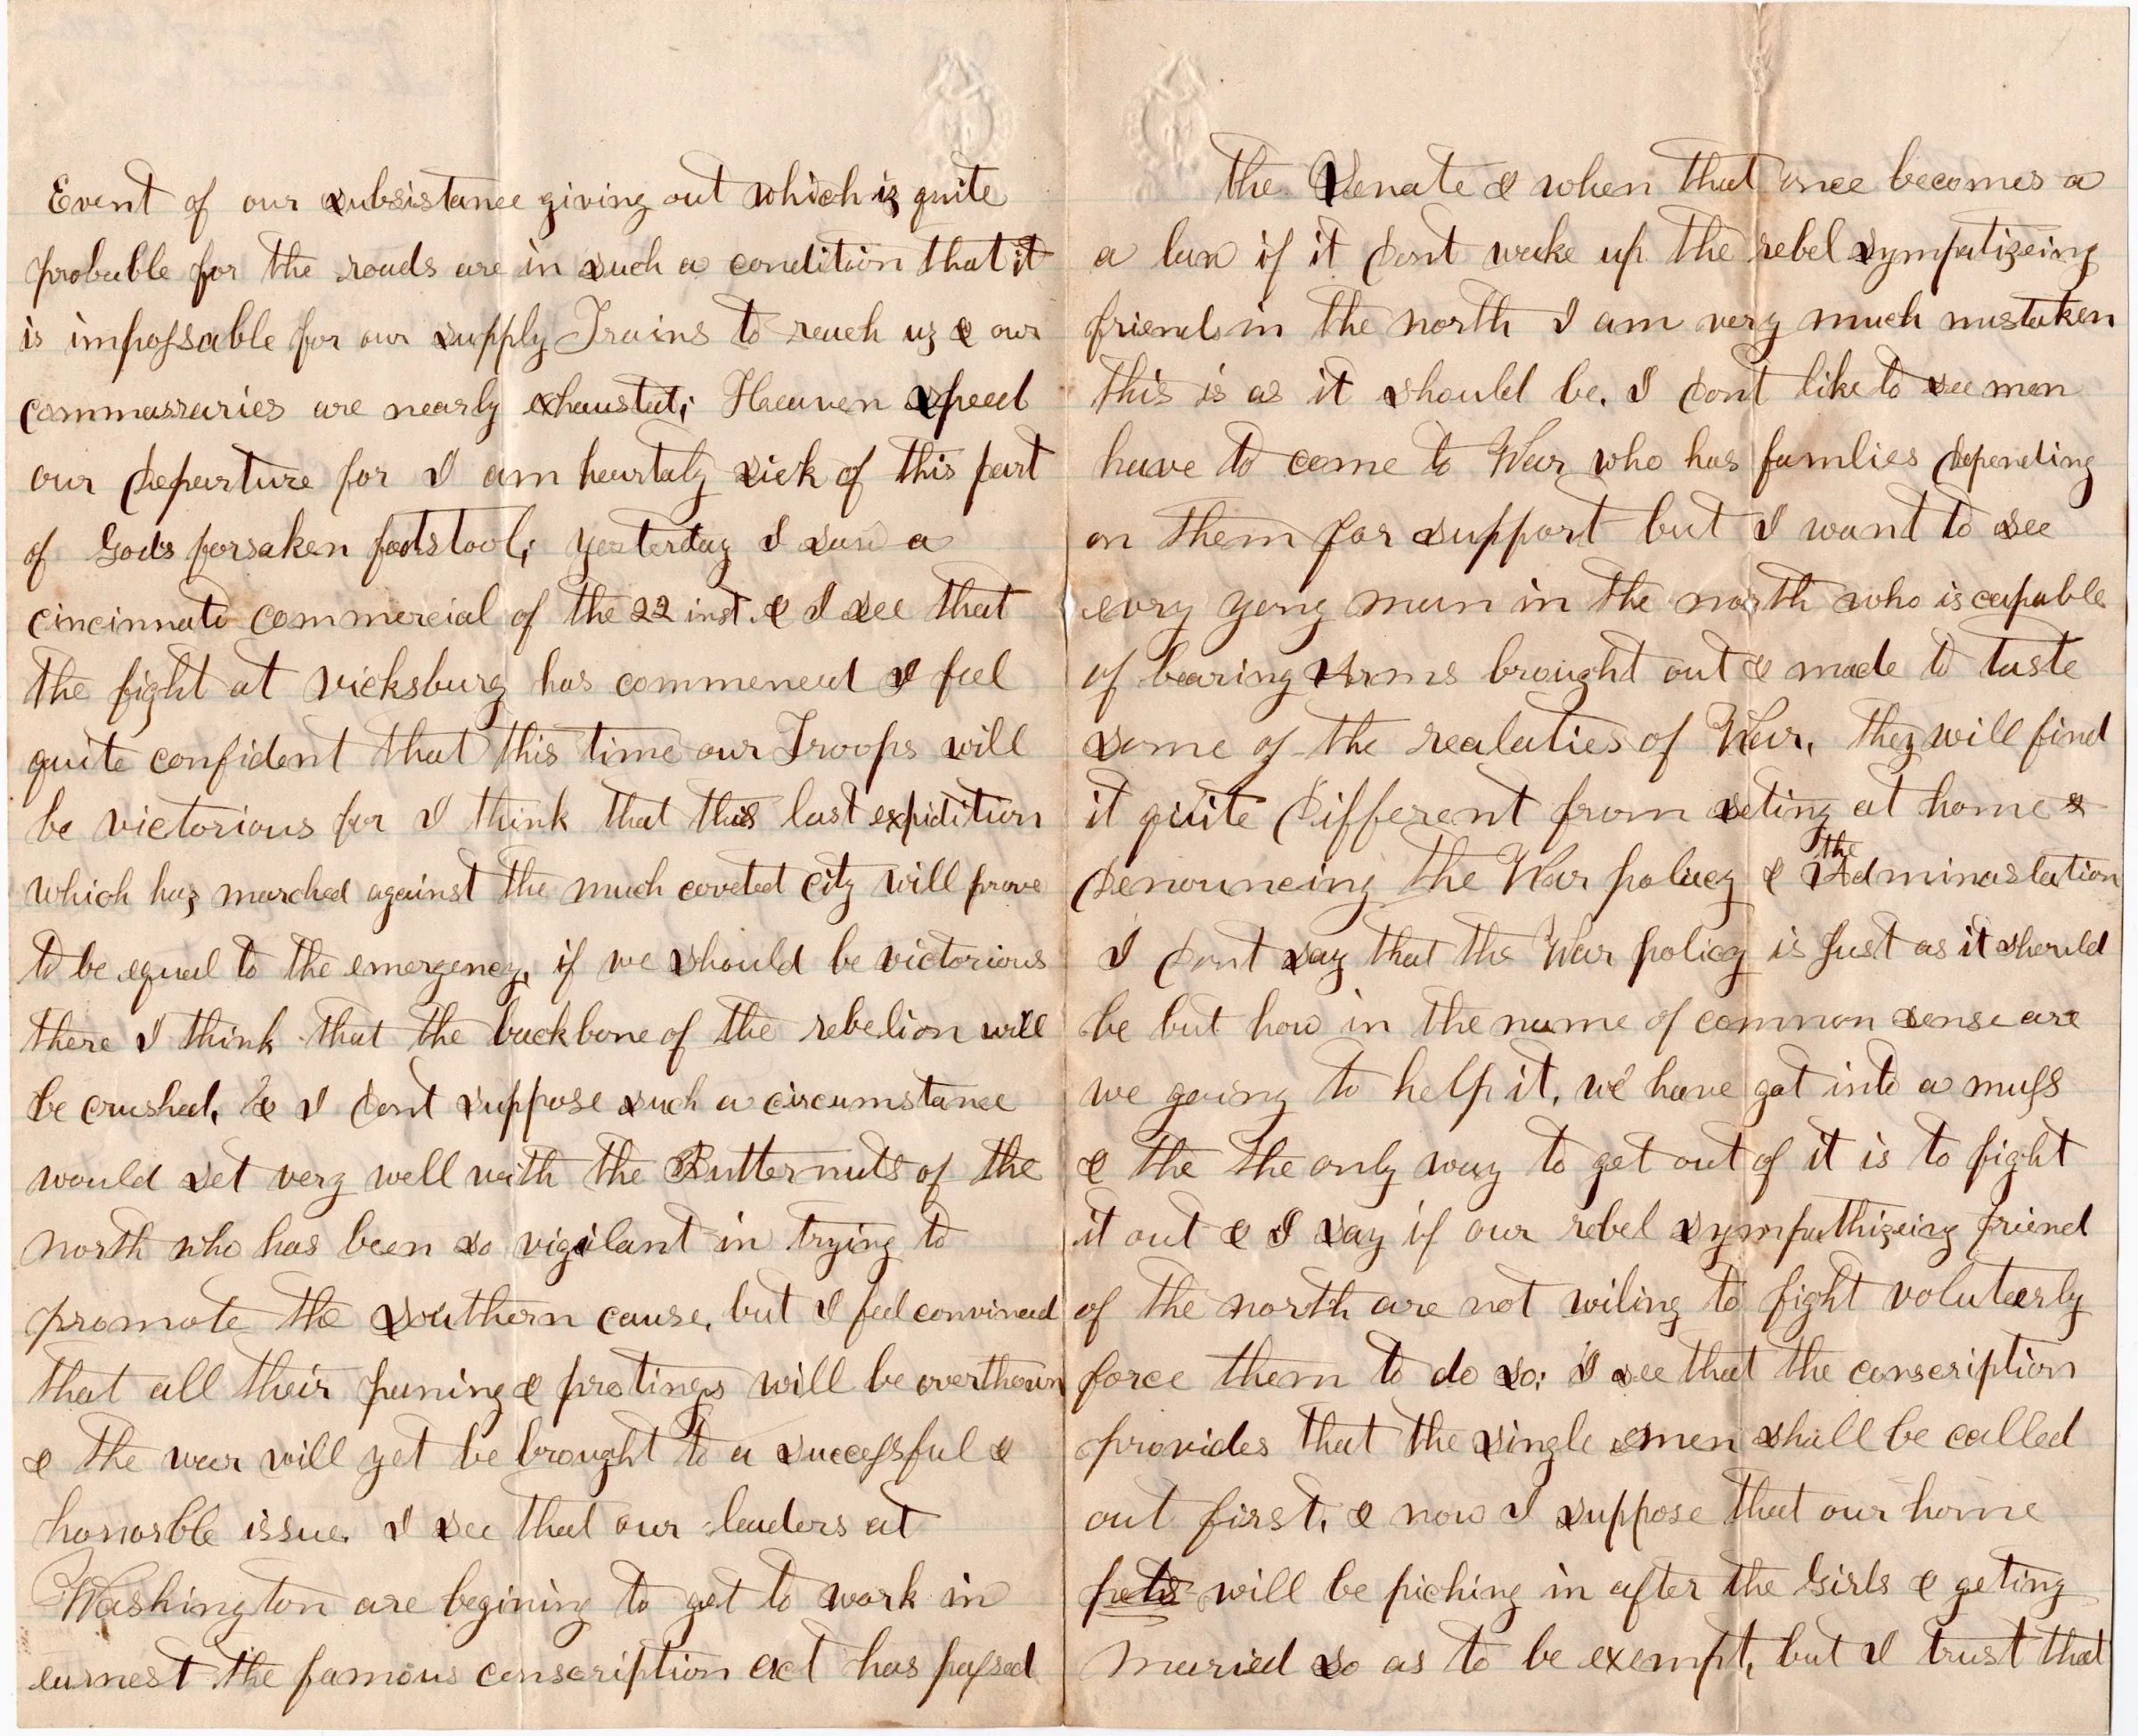 Event of our subsistance giving out which is quite
probable for the roads are in such a condition that it
is impossable for our supply Trains to reach us & our
commassaries are nearly exhausted; Heaven speed
our departure for I am heartaly sick of this part
of Gods forsaken footstool; yesterday I saw a
cincinnati commercial of the 22 inst. & I see that
the fight at vicksburg has commenced I feel
quite confident that this time our Troops will
be victorious for I think that this last expidition
which has marched against the much coveted city will prove
to be equal to the emergency, if we should be victorious
there I think that the backbone of the rebelion will
be crushed, & I dont suppose such a circumstance
would set very well with the Butternuts of the
north who has been so vigilant in trying to
promote the southern cause, but I feel convinced
that all their planing & protings will be overthown
& the war will yet be brought to a successful &
honorble issue. I see that our leaders at
Washington are begining to get to work in
earnest the famous conscription act has passed
the Senate & when that once becomes a
a law if it dont wake up the rebel sympatizeing
friends in the north I am very much mistaken
this is as it should be. I dont like to see men
have to come to War who has famlies depending
on them for support but I want to see
evry yong man in the north who is capable
of bearing Arms brought out & made to taste
some of the realaties of War, they will find
it quite different from seting at home &
denouncing the War policy & the Adminastation
I dont say that the War policy is Just as it should
be but how in the name of common sense are
we going to help it, we have got into a muss
& the the only way to get out of it is to fight
it out & I say if our rebel sympathizeing friend
of the north are not wiling to fight voluteerly
force them to do so; I see that the conscription
provides that the single men shall be called
out first, & now I suppose that our home
pets will be piching in after the Girls & geting
maried so as to be exempt, but I trust that